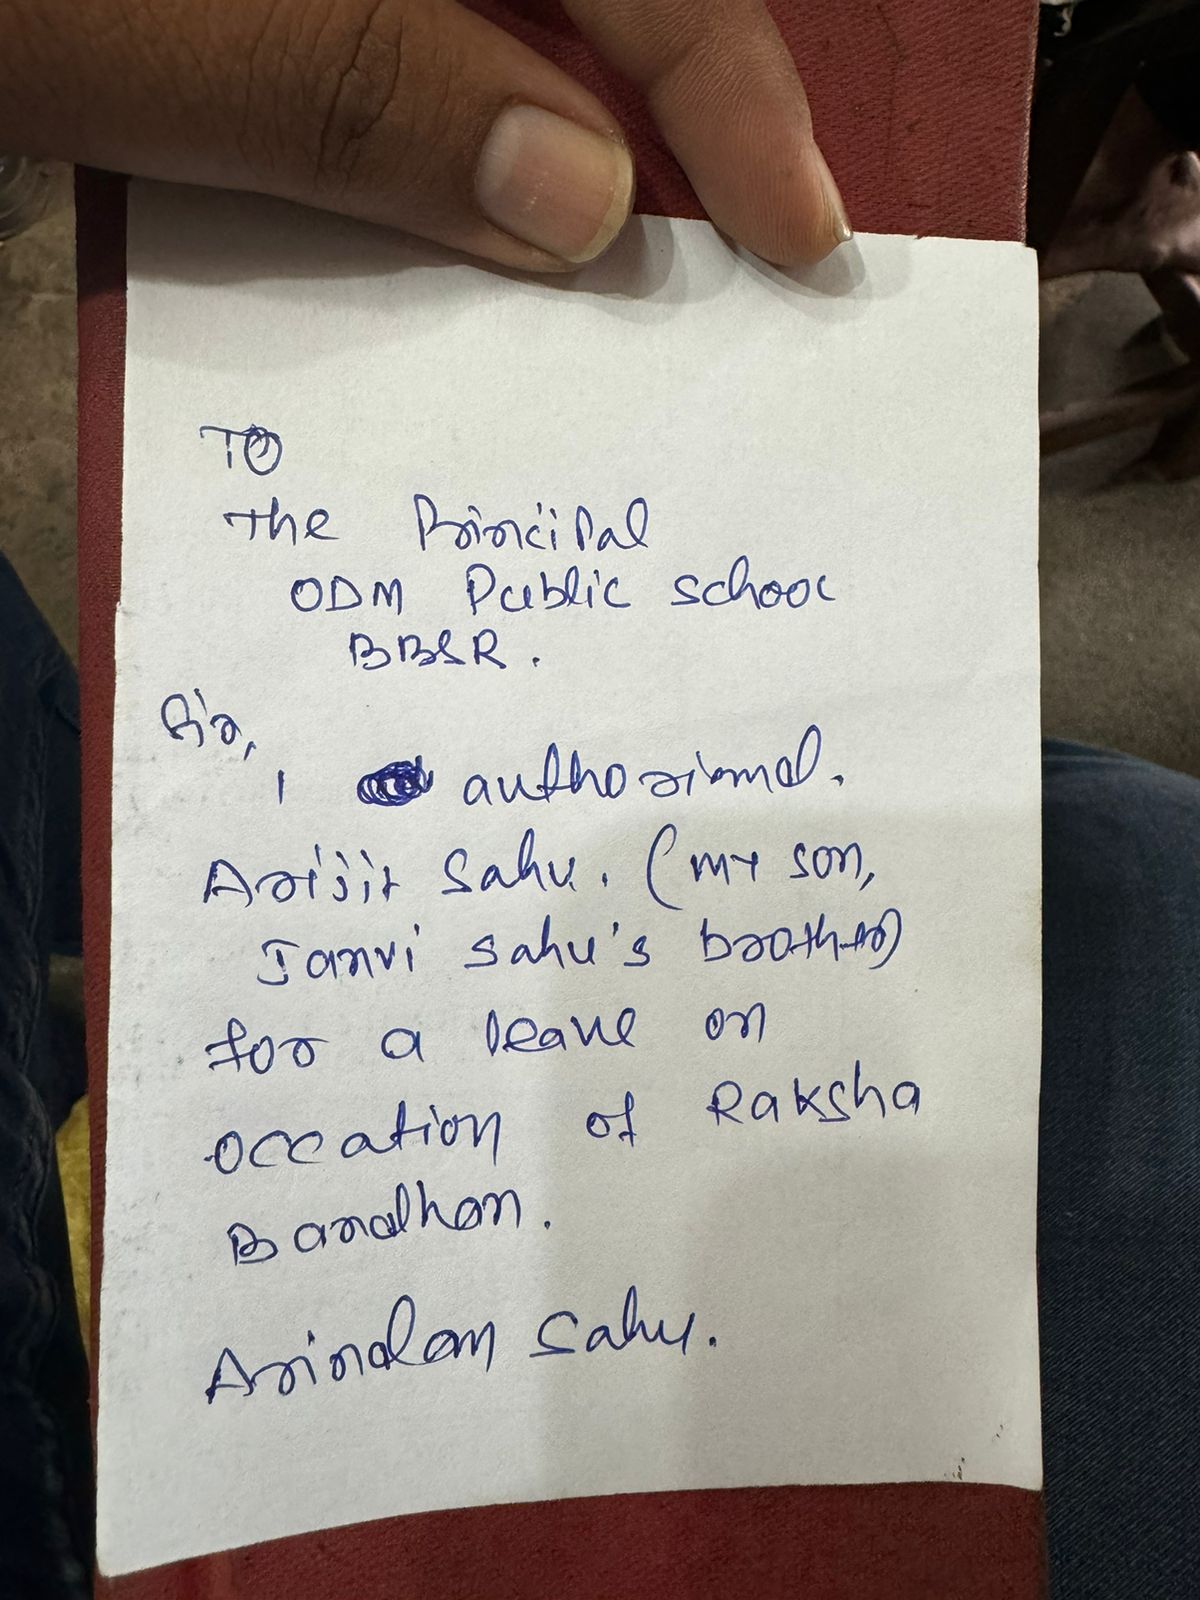 To
The Principal
ODM Public school
BBSR.
Sir,
I authorismd.
Arijit Sahu. (my son,
Janvi Sahu's brother)
for a leave on
occation of Raksha
Bandhan.
Arindam Sahu.